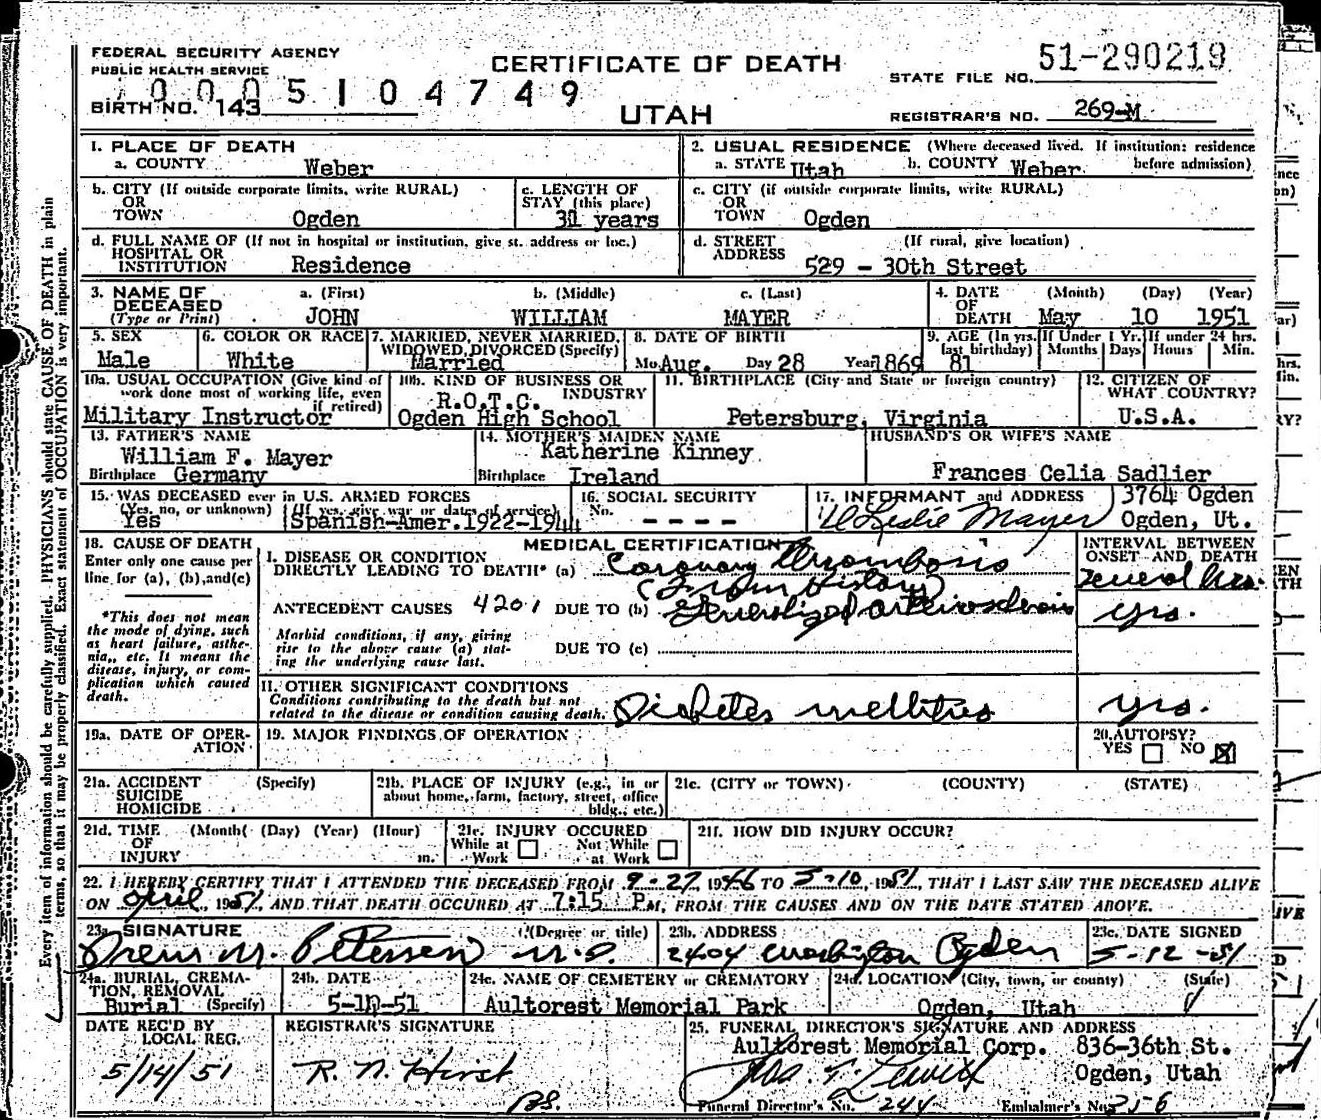 FEDERAL SECURITY AGENCY
PUBLIC HEALTH SERVICE
CERTIFICATE OF DEATH
STATE FILE NO. 51-290219
0005104749
BIRTH NO. 143
UTAH
REGISTRAR'S NO. 269-M
1. PLACE OF DEATH
a. COUNTY Weber
2. USUAL RESIDENCE (Where deceased lived. If institution: residence before admission)
a. STATE Utah b. COUNTY Weber
b. CITY (If outside corporate limits, write RURAL)
OR
TOWN Ogden
c. LENGTH OF
STAY (this place)
31 years
c. CITY (if outside corporate limits, write RURAL)
OR
TOWN Ogden
d. FULL NAME OF (If not in hospital or institution, give st. address or loc.)
HOSPITAL OR
INSTITUTION Residence
d. STREET (If rural, give location)
ADDRESS
529 - 30th Street
3. NAME OF
DECEASED
(Type or Print)
a. (First) b. (Middle) c. (Last)
JOHN WILLIAM MAYER
4. DATE (Month) (Day) (Year)
OF
DEATH May 10 1951
5. SEX
Male
6. COLOR OR RACE
White
7. MARRIED, NEVER MARRIED,
WIDOWED, DIVORCED (Specify)
Married
8. DATE OF BIRTH
Mo. Aug. Day 28 Year 1869
9. AGE (In yrs. last birthday)
81
If Under 1 Yr.
Months Days
If under 24 hrs.
Hours Min.
10a. USUAL OCCUPATION (Give kind of
work done most of working life, even
if retired)
Military Instructor
10b. KIND OF BUSINESS OR
INDUSTRY
R.O.T.C.
Ogden High School
11. BIRTHPLACE (City and State or foreign country)
Petersburg, Virginia
12. CITIZEN OF
WHAT COUNTRY?
U.S.A.
13. FATHER'S NAME
William F. Mayer
Birthplace Germany
14. MOTHER'S MAIDEN NAME
Katherine Kinney
Birthplace Ireland
HUSBAND'S OR WIFE'S NAME
Frances Celia Sadlier
15. WAS DECEASED ever in U.S. ARMED FORCES
(Yes, no, or unknown) (If yes, give war or dates of service)
Yes Spanish-Amer. 1922-1944
16. SOCIAL SECURITY
No. - - - -
17. INFORMANT and ADDRESS
Leslie Mayer
3764 Ogden
Ogden, Ut.
18. CAUSE OF DEATH
Enter only one cause per
line for (a), (b), and (c)
*This does not mean
the mode of dying, such
as heart failure, asthe-
nia, etc. It means the
disease, injury, or com-
plication which caused
death.
MEDICAL CERTIFICATION
INTERVAL BETWEEN
ONSET AND DEATH
I. DISEASE OR CONDITION
DIRECTLY LEADING TO DEATH* (a) Coronary thrombosis
several hrs.
(From History)
ANTECEDENT CAUSES 420.1 DUE TO (b) Generalized arteriosclerosis
yrs.
Morbid conditions, if any, giving
rise to the above cause (a) stat-
ing the underlying cause last.
DUE TO (c)
II. OTHER SIGNIFICANT CONDITIONS
Conditions contributing to the death but not
related to the disease or condition causing death.
Diabetes mellitus
yrs.
19a. DATE OF OPER-
ATION
19. MAJOR FINDINGS OF OPERATION
20. AUTOPSY?
YES NO X
21a. ACCIDENT (Specify)
SUICIDE
HOMICIDE
21b. PLACE OF INJURY (e.g., in or
about home, farm, factory, street, office
bldg., etc.)
21c. (CITY or TOWN) (COUNTY) (STATE)
21d. TIME (Month( (Day) (Year) (Hour)
OF
INJURY m.
21e. INJURY OCCURED
While at Work
Not While at Work
21f. HOW DID INJURY OCCUR?
22. I HEREBY CERTIFY THAT I ATTENDED THE DECEASED FROM 9-27, 1946 TO 5-10, 1951, THAT I LAST SAW THE DECEASED ALIVE
ON April, 1951, AND THAT DEATH OCCURED AT 7:15 P.M, FROM THE CAUSES AND ON THE DATE STATED ABOVE.
23a. SIGNATURE (Degree or title)
M. Petersen M.D.
23b. ADDRESS
2404 Washington Ogden
23c. DATE SIGNED
5-12-51
24a. BURIAL, CREMA-
TION, REMOVAL
Burial (Specify)
24b. DATE
24c. NAME OF CEMETERY or CREMATORY
Aultorest Memorial Park
24d. LOCATION (City, town, or county) (State)
Ogden, Utah
DATE REC'D BY
LOCAL REG.
5/14/51
REGISTRAR'S SIGNATURE
R. N. Hirst
25. FUNERAL DIRECTOR'S SIGNATURE AND ADDRESS
Aultorest Memorial Corp. 836-36th St.
Ogden, Utah
Funeral Director's No. 244 Embalmer's No.
Every item of information should be carefully supplied. PHYSICIANS should state CAUSE OF DEATH in plain
terms, so that it may be properly classified. Exact statement of OCCUPATION is very important.